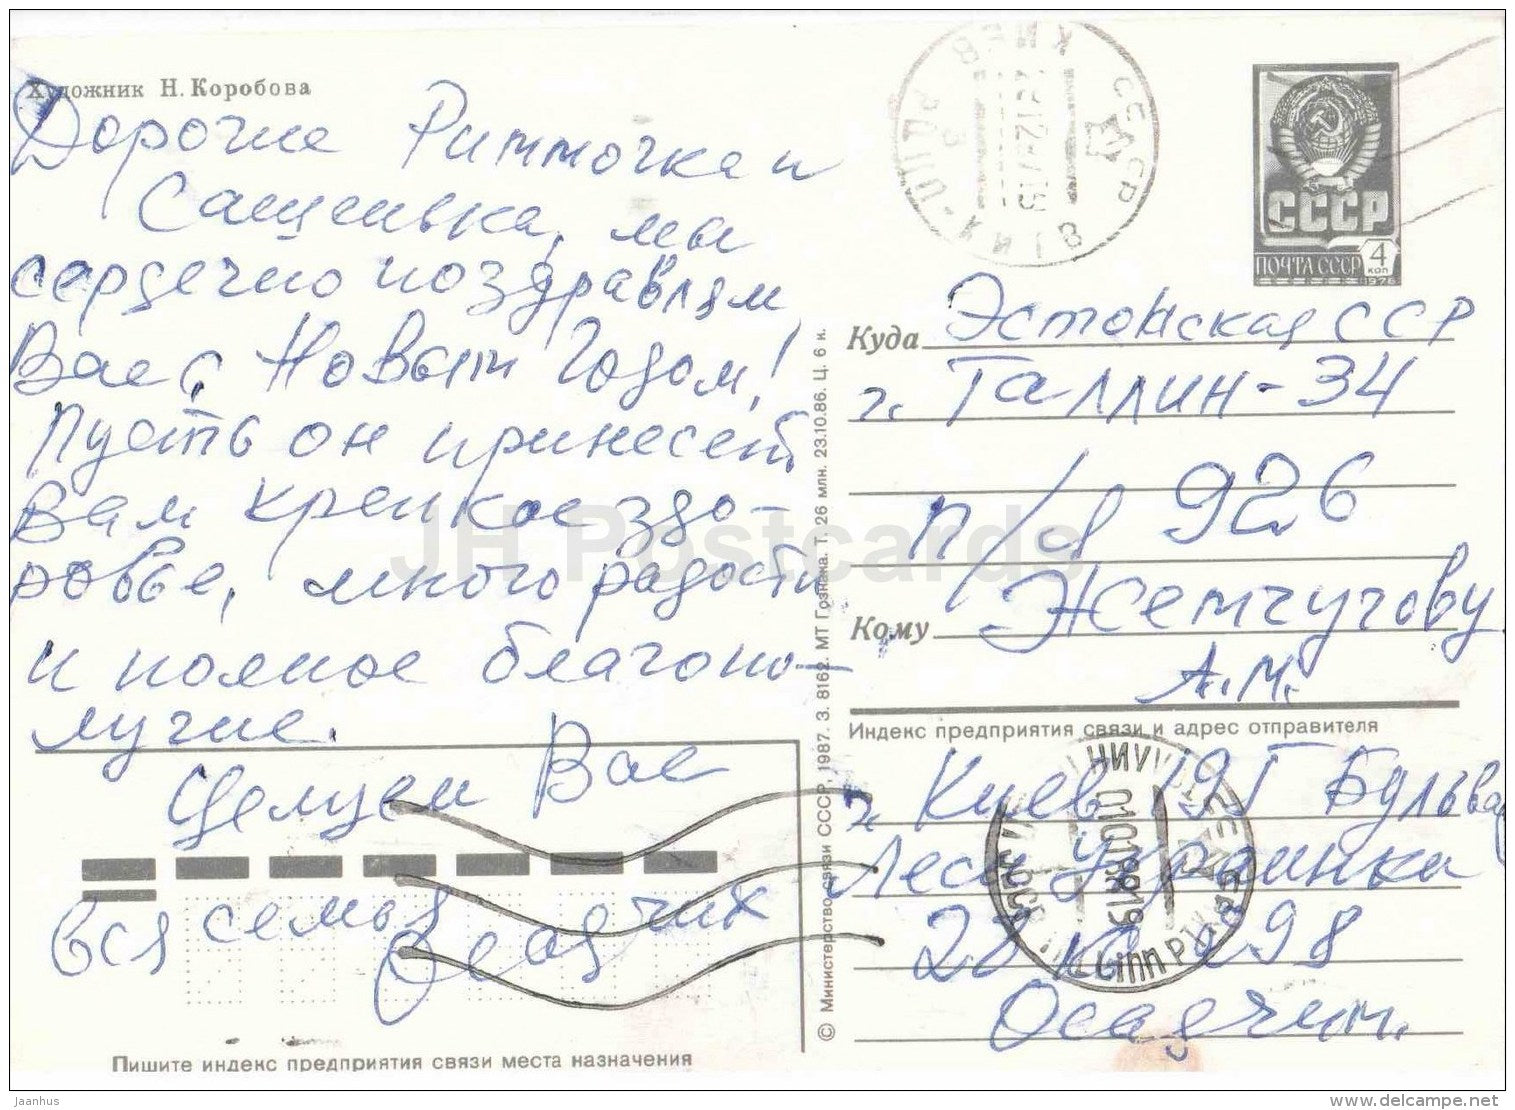 Художник Н. Коробова
Дорогие Риммочка и
Сащенька, мы
сердечно поздравляем
Вас с Новым Годом!
Пусть он принесет
Вам крепкое здо-
ровье, много радости
и полное благопо-
лучие.
Целуем Вас
вся семья Осадчих
Пишите индекс предприятия связи места назначения
© Министерство связи СССР, 1987. З. 8162. МТ Гознака. Т. 26 млн. 23.10.86. Ц. 6 к.
СССР
ПОЧТА СССР 4 коп
1976
СССР
Куда Эстонская ССР
г. Таллин-34
п/я 926
Кому Жемчугову
А.М.
Индекс предприятия связи и адрес отправителя
г. Киев 195 Бульвар
Леси Украинки
28 кв 298
Осадчим.
TALLINN
JH Postcards
Jaanhus
www.delcampe.net